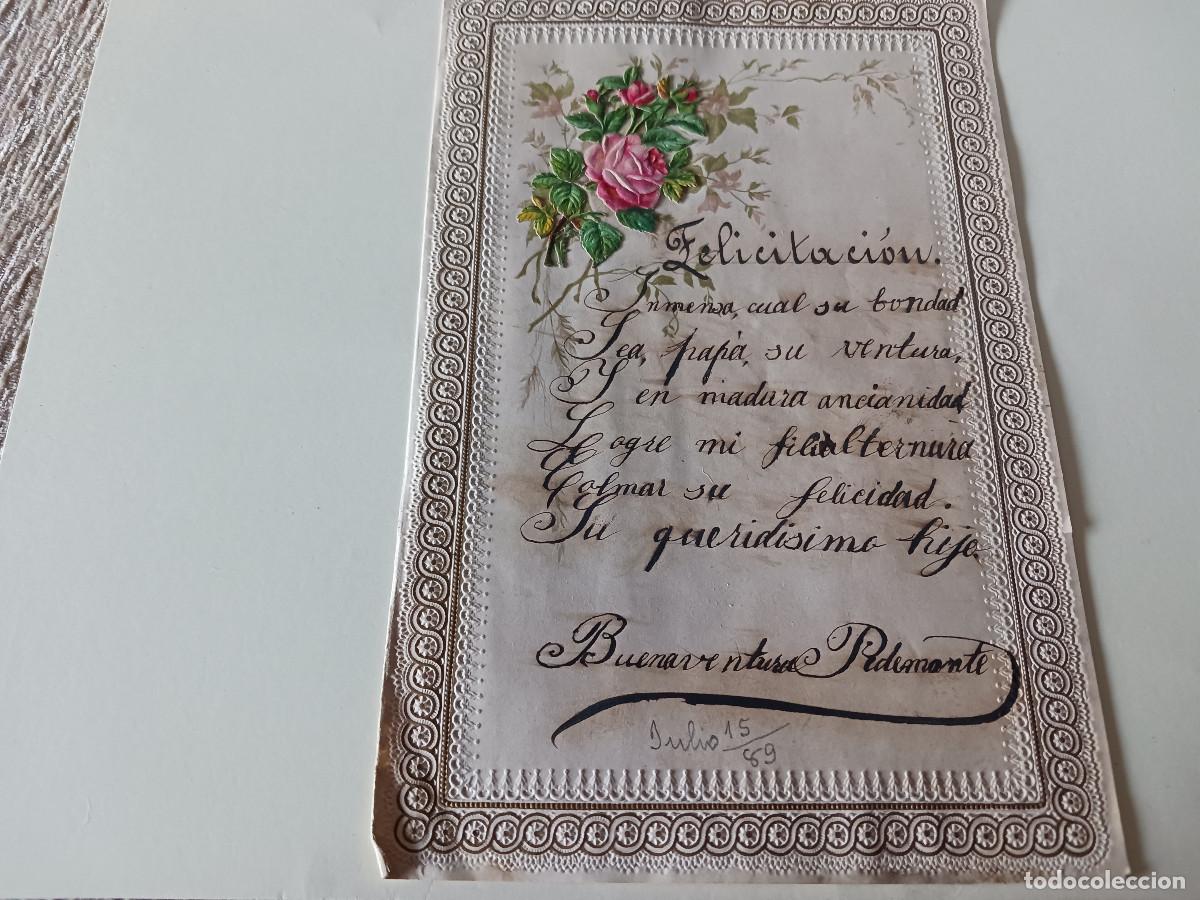 Felicitación.
Inmensa, cual su bondad
Sea, papá, su ventura,
Y en madura ancianidad
Logre mi filial ternura
Colmar su felicidad.
Su queridisimo hijo
Buenaventura Pedemonte
Julio 15/89
todocoleccion